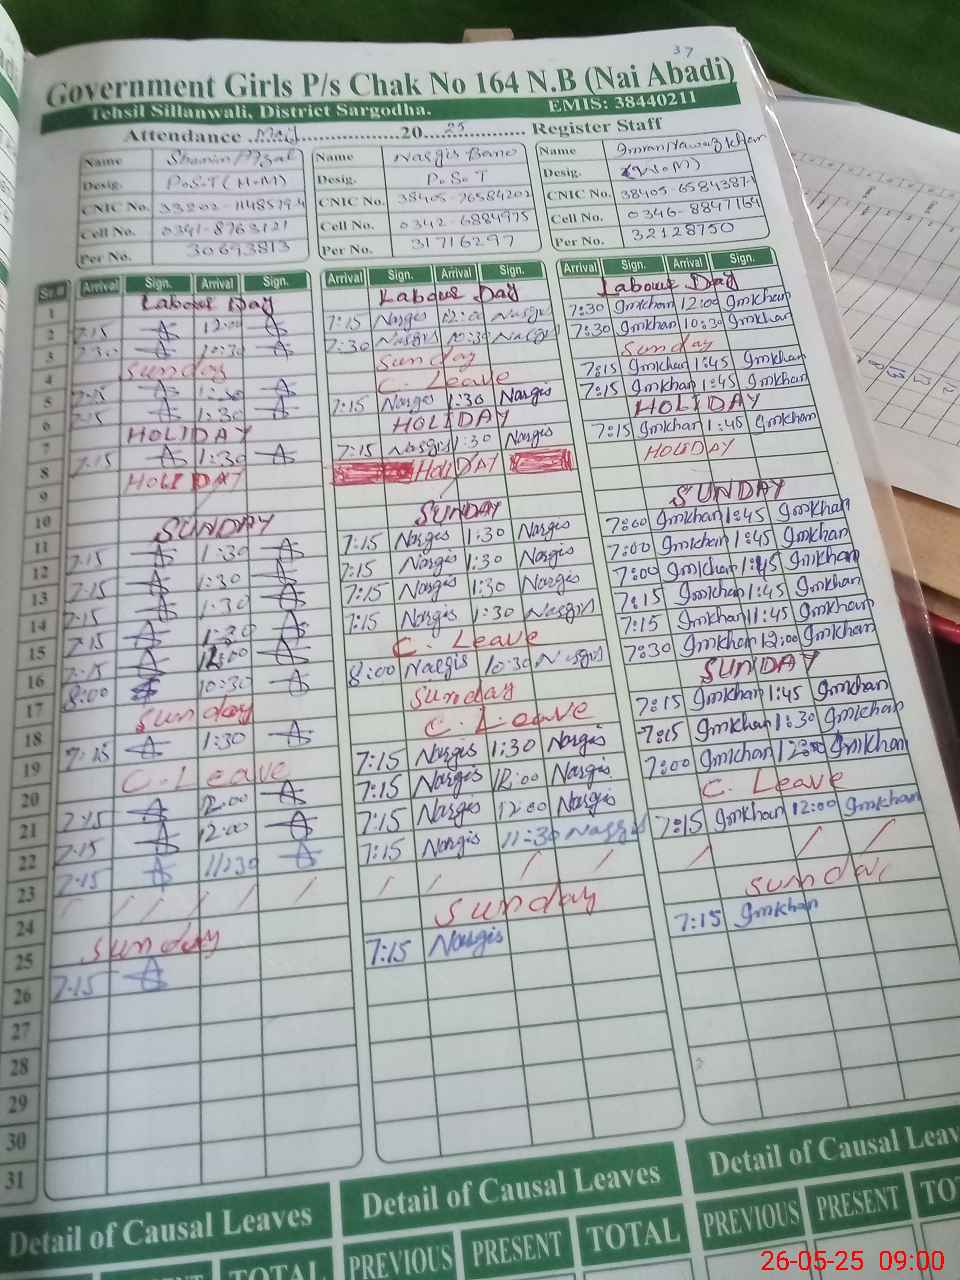 37
Government Girls P/s Chak No 164 N.B (Nai Abadi)
Tehsil Sillanwali, District Sargodha. EMIS: 38440211
Attendance May 20 25 Register Staff
Name Shamim Afzal Name Nargis Bano Name Imran Nawaz Khan
Desig. P.S.T (H.M) Desig. P.S.T Desig.
CNIC No. CNIC No. 38405-76584202 CNIC No. 38405-6584387-1
Cell No. 0341-8763121 Cell No. 0342-6884975 Cell No. 0346-8847164
Per No. 30693813 Per No. 31716297 Per No. 32128750
Sr.# Arrival Sign. Arrival Sign. Arrival Sign. Arrival Sign. Arrival Sign. Arrival Sign.
1 Labour Day Labour Day Labour Day
2 7:15 12:00 7:15 Narges 12:00 Nargis 7:30 Imkhan 12:00 Imkhan
3 7:30 10:30 7:30 Nargis 10:30 Nargis 7:30 Imkhan 10:30 Imkhan
4 Sunday Sunday Sunday
5 7:15 1:30 C. Leave 7:15 Imkhan 1:45 Imkhan
6 7:15 1:30 7:15 Nargis 1:30 Nargis 7:15 Imkhan 1:45 Imkhan
7 HOLIDAY HOLIDAY HOLIDAY
8 7:15 1:30 7:15 Nargis 1:30 Nargis 7:15 Imkhan 1:45 Imkhan
9 HOLIDAY HOLIDAY HOLIDAY
10
11 SUNDAY SUNDAY SUNDAY
12 7:15 1:30 7:15 Nargis 1:30 Nargis 7:00 Imkhan 1:45 Imkhan
13 7:15 1:30 7:15 Nargis 1:30 Nargis 7:00 Imkhan 1:45 Imkhan
14 7:15 1:30 7:15 Nargis 1:30 Nargis 7:00 Imkhan 1:45 Imkhan
15 7:15 1:30 7:15 Nargis 1:30 Nargis 7:15 Imkhan 1:45 Imkhan
16 7:15 12:00 C. Leave 7:15 Imkhan 11:45 Imkhan
17 8:00 10:30 8:00 Nargis 10:30 Nargis 7:30 Imkhan Imkhan
18 Sunday Sunday SUNDAY
19 7:15 1:30 C. Leave 7:15 Imkhan 1:45 Imkhan
20 C. Leave 7:15 Nargis 1:30 Nargis 7:15 Imkhan 1:30 Imkhan
21 7:15 12:00 7:15 Nargis 12:00 Nargis 7:00 Imkhan Imkhan
22 7:15 12:00 7:15 Nargis 12:00 Nargis C. Leave
23 7:15 11:30 7:15 Nargis 11:30 Nargis 7:15 Imkhan 12:00 Imkhan
24
25 Sunday Sunday Sunday
26 7:15 7:15 Nargis 7:15 Imkhan
27
28
29
30
31
Detail of Causal Leaves Detail of Causal Leaves Detail of Causal Leav
PREVIOUS PRESENT TOTAL PREVIOUS PRESENT TO
PRESENT TOTAL
26-05-25 09:00